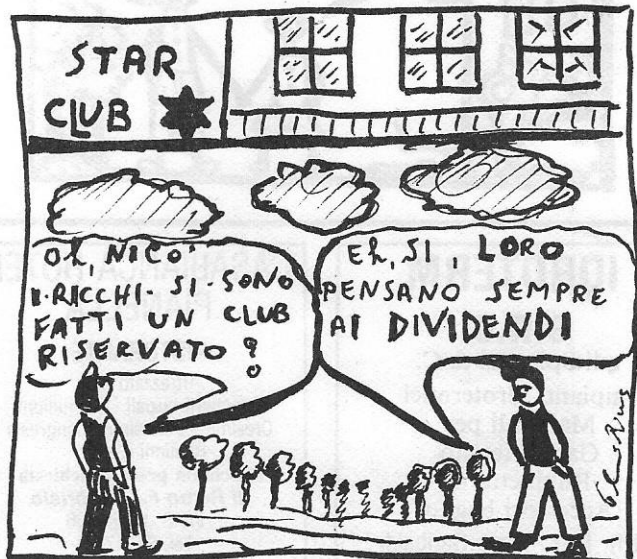 STAR
CLUB
OH, NICO'
I RICCHI SI SONO
FATTI UN CLUB
RISERVATO?
EH, SI, LORO
PENSANO SEMPRE
AI DIVIDENDI